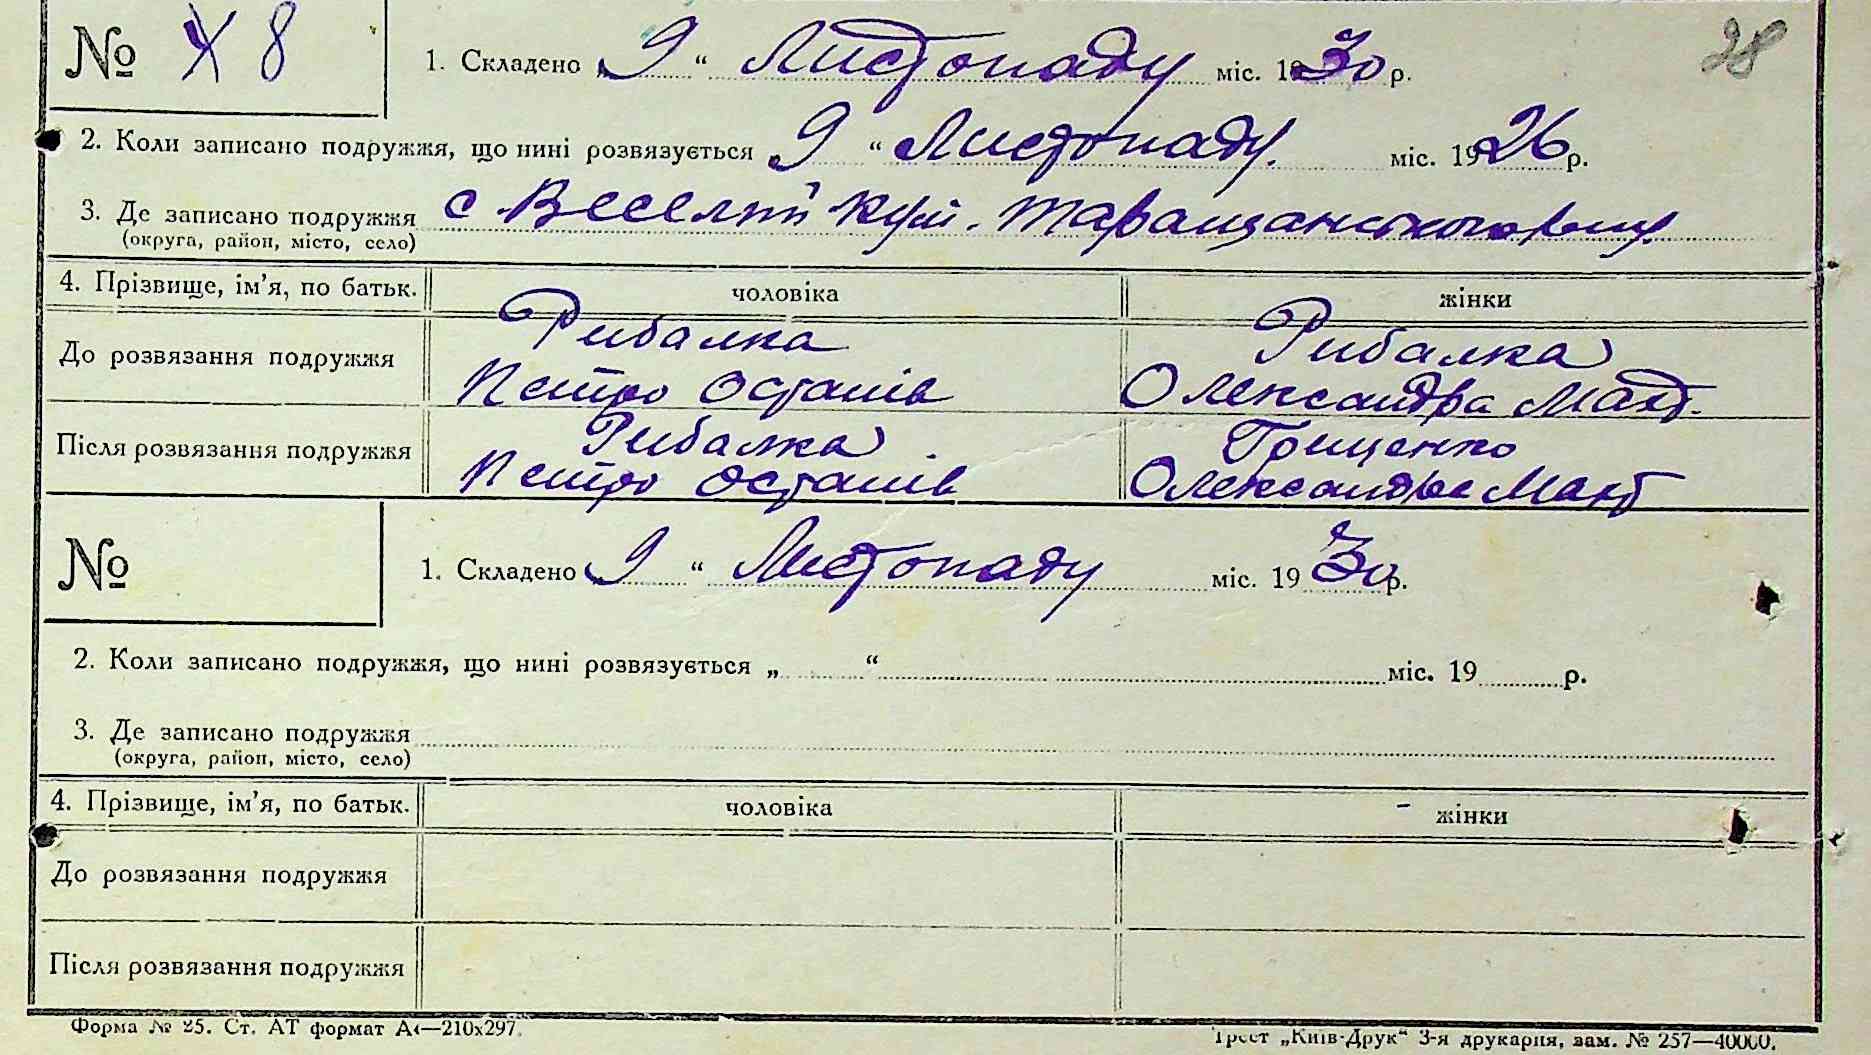 № 8 1. Складено „9“ Листопаду міс. 1930 р. 28
2. Коли записано подружжя, що нині розвязується „9“ Листопаду міс. 1926 р.
3. Де записано подружжя с Веселий Кут. Таращанського
(округа, район, місто, село)
4. Прізвище, ім’я, по батьк. чоловіка жінки
До розвязання подружжя Рибалка Рибалка
Петро Остапів Олександра
Після розвязання подружжя Рибалка Грищенко
Петро Остапів Олександра
№ 1. Складено „9“ Листопаду міс. 1930 р.
2. Коли записано подружжя, що нині розвязується „ “ міс. 19 р.
3. Де записано подружжя
(округа, район, місто, село)
4. Прізвище, ім’я, по батьк. чоловіка жінки
До розвязання подружжя
Після розвязання подружжя
Форма № 25. Ст. АТ формат А4—210х297. Трест „Київ-Друк“ 3-я друкарня, зам. № 257—40000.